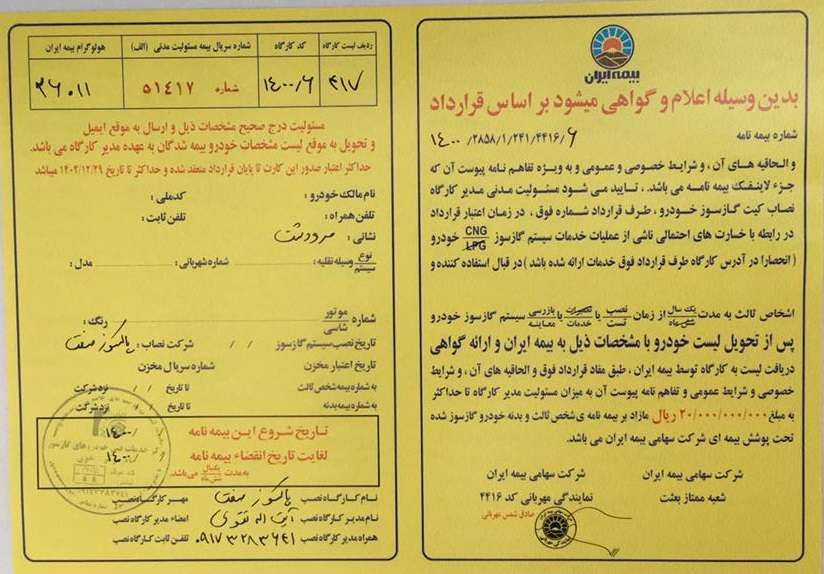 بیمه ایران
بدین وسیله اعلام و گواهی میشود بر اساس قرارداد
شماره بیمه نامه ۱۴۰۰/۲۸۵۸/۱/۲۴۱/۴۴۱۶/۶
و الحاقیه های آن ، و شرایط خصوصی و عمومی و به ویژه تفاهم نامه پیوست آن که
جزء لاینفک بیمه نامه می باشد . تایید می شود مسئولیت مدنی مدیر کارگاه
نصاب کیت گازسوز خودرو ، طرف قرارداد شماره فوق ، در زمان اعتبار قرارداد
در رابطه با خسارت های احتمالی ناشی از عملیات خدمات سیستم گازسوز CNG LPG خودرو
( انحصارا در آدرس کارگاه طرف قرارداد فوق خدمات ارائه شده باشد ) در قبال استفاده کننده و
اشخاص ثالث به مدت یک سال شش ماه از زمان نصب تست یا تعمیرات خدمات یا بازرسی معاینه سیستم گازسوز خودرو
پس از تحویل لیست خودرو با مشخصات ذیل به بیمه ایران و ارائه گواهی
دریافت لیست به کارگاه توسط بیمه ایران ، طبق مفاد قرارداد فوق و الحاقیه های آن ، و شرایط
خصوصی و شرایط عمومی و تفاهم نامه پیوست آن به میزان مسئولیت مدیر کارگاه تا حداکثر
به مبلغ ۲۰/۰۰۰/۰۰۰/۰۰۰ ریال مازاد بر بیمه نامه ی شخص ثالث و بدنه خودرو گازسوز شده
تحت پوشش بیمه ای شرکت سهامی بیمه ایران می باشد .
شرکت سهامی بیمه ایران شرکت سهامی بیمه ایران
شعبه ممتاز بعثت نمایندگی مهربانی کد ۴۴۱۶
صادق شمس مهربانی
ردیف لیست کارگاه کد کارگاه شماره سریال بیمه مسئولیت مدنی (الف) هولوگرام بیمه ایران
۴۱۷ ۱۴۰۰/۶ شماره ۵۱۴۱۷ ۳۶۰۱۱
مسئولیت درج صحیح مشخصات ذیل و ارسال به موقع ایمیل
و تحویل به موقع لیست مشخصات خودرو بیمه شدگان به عهده مدیر کارگاه می باشد.
حداکثر اعتبار صدور این کارت تا پایان قرارداد منعقد شده و حداکثر تا تاریخ ۱۴۰۲/۱۲/۲۹ میباشد
نام مالک خودرو : کدملی :
تلفن همراه : تلفن ثابت :
نشانی : مرودشت
نوع سیستم وسیله نقلیه : شماره شهربانی : مدل :
شماره موتور شاسی رنگ :
تاریخ نصب سیستم گازسوز / / شرکت نصاب : پالسکوز صفت
تاریخ اعتبار مخزن شماره سریال مخزن
به شماره بیمه شخص ثالث تا تاریخ / / نزد شرکت
به شماره بیمه بدنه تا تاریخ / / نزد شرکت
تاریخ شروع این بیمه نامه ۱۴۰۰/
لغایت تاریخ انقضاء بیمه نامه ۱۴۰۰/
به مدت یکسال شش ماه می باشد.
نام کارگاه نصب پالسکوز صفت مهر کارگاه نصب
نام مدیر کارگاه نصب آیت اله تقوی امضاء مدیر کارگاه نصب
همراه مدیر کارگاه نصب ۰۹۱۷۳۲۸۳۶۴۱ تلفن ثابت کارگاه نصب